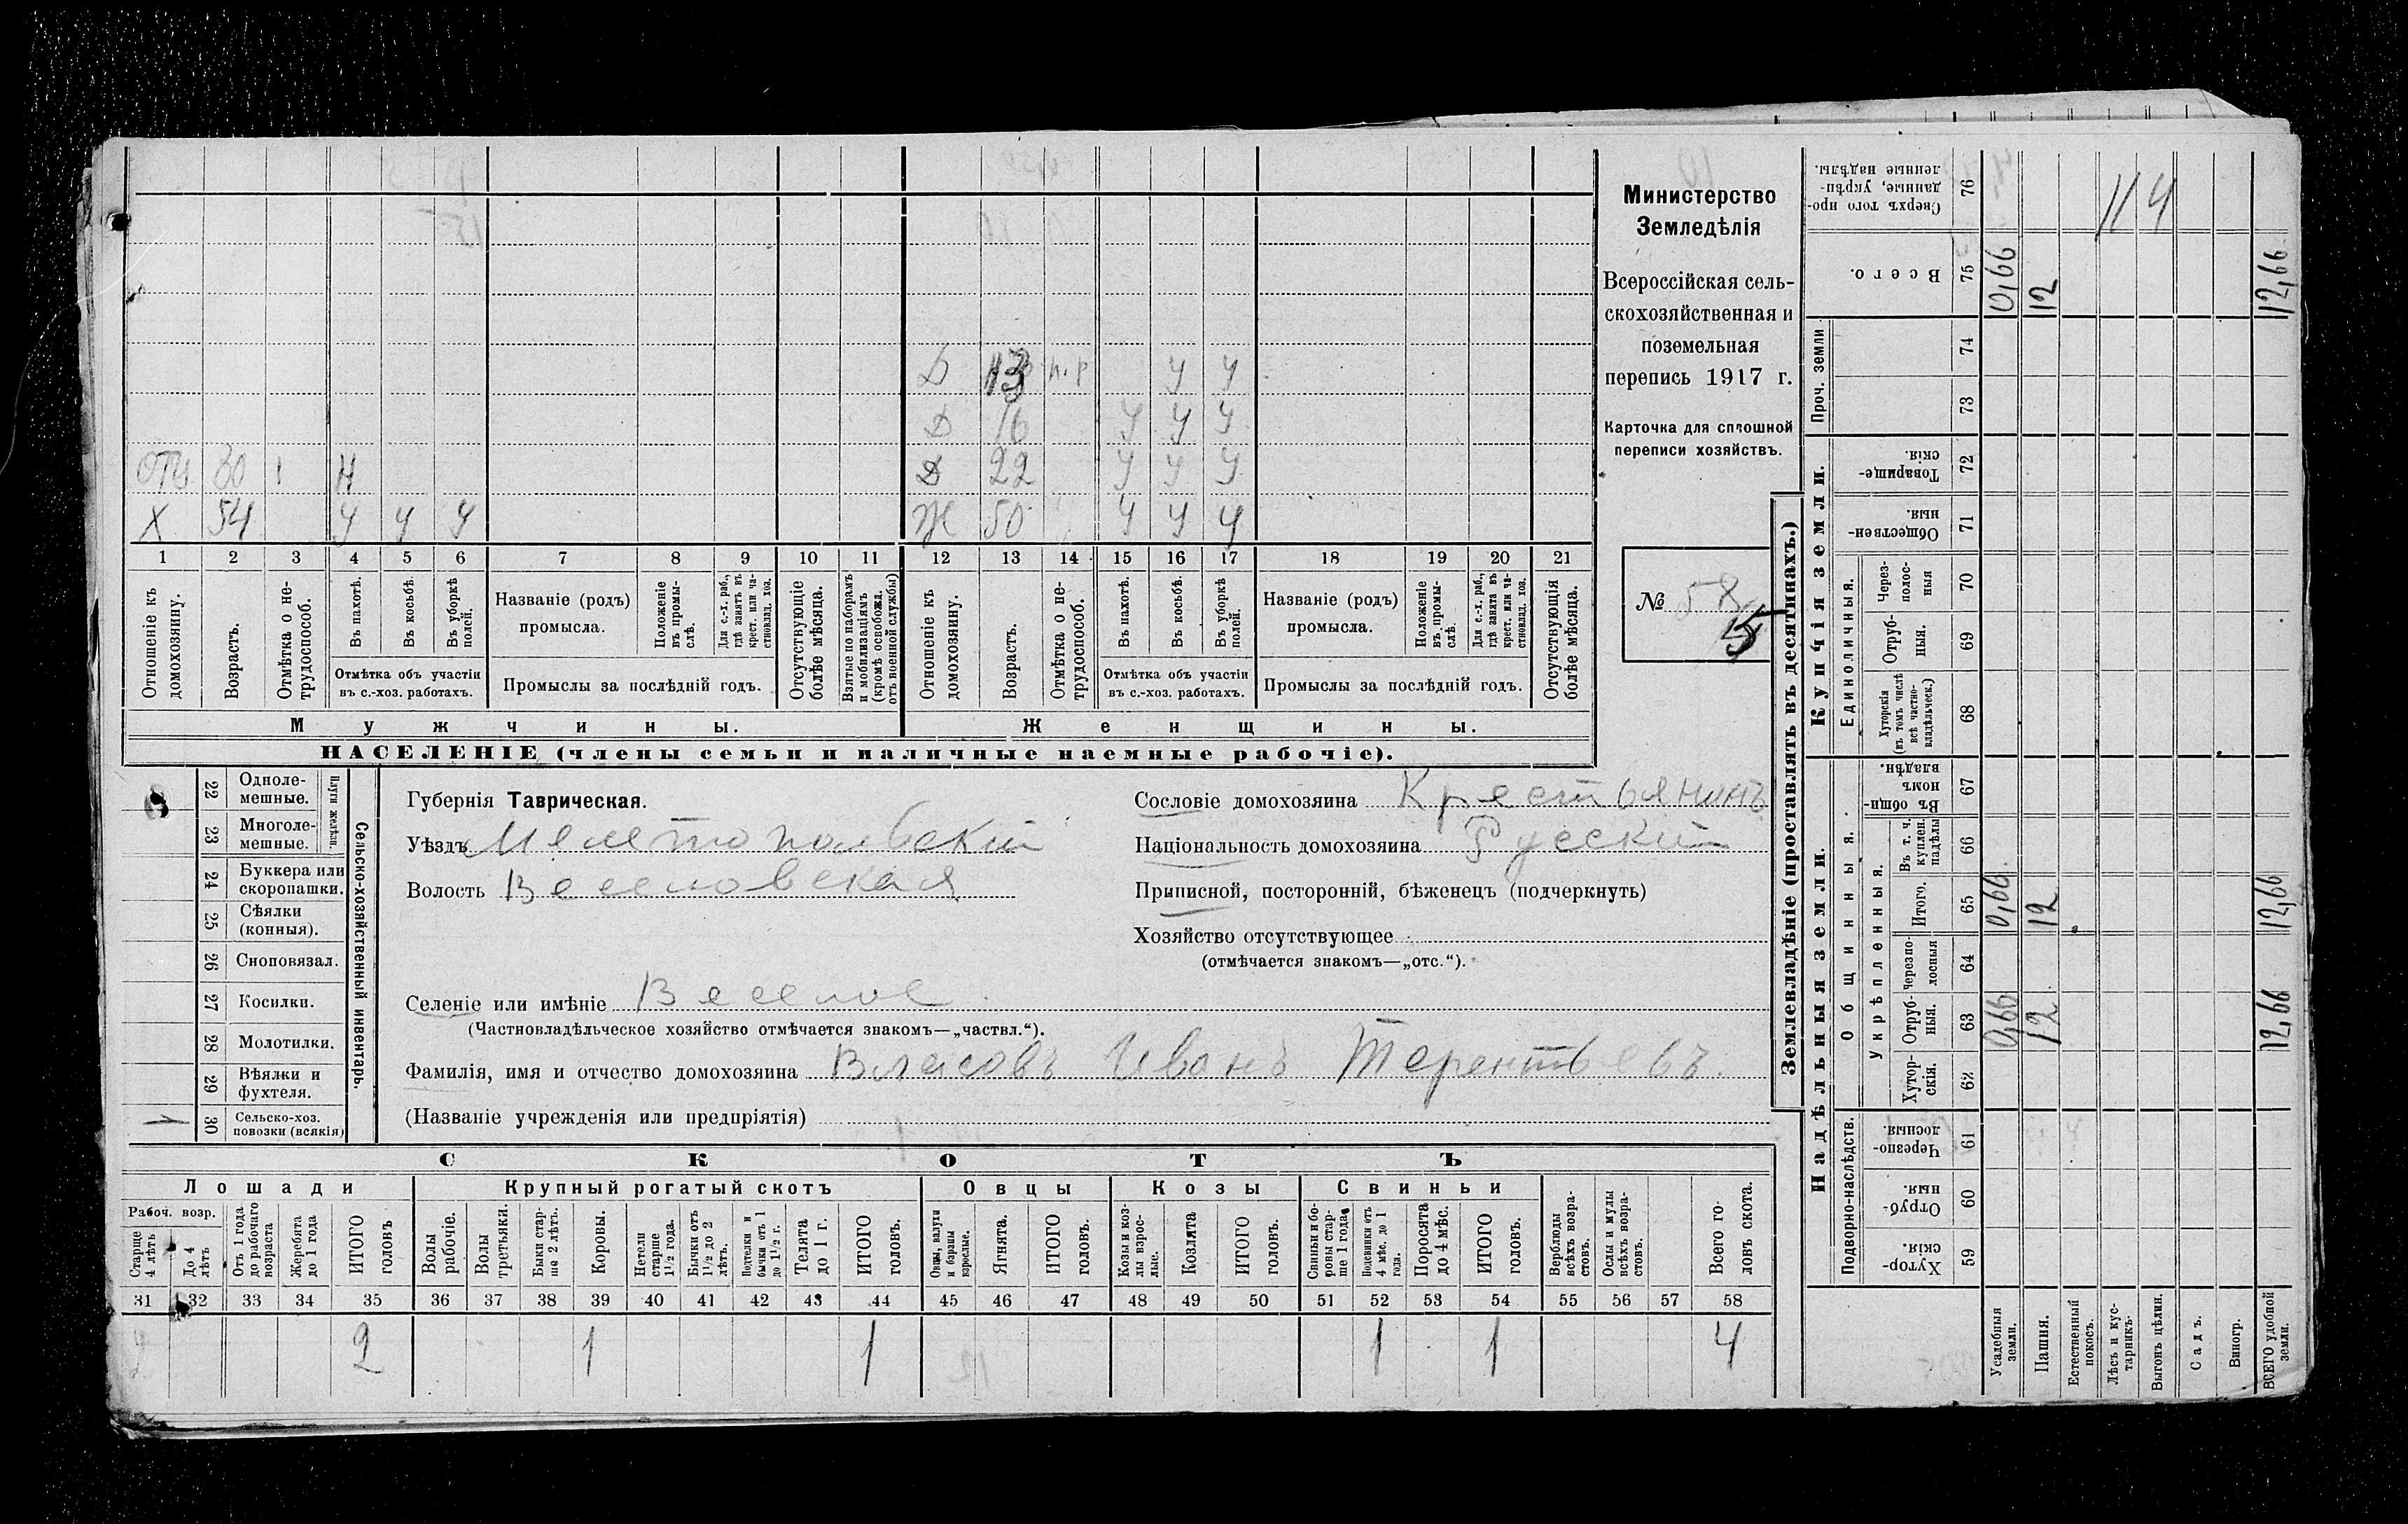 Министерство
Земледѣлія
Всероссійская сель-
скохозяйственная и
поземельная
перепись 1917 г.
Карточка для сплошной
переписи хозяйствъ.
№ 58
15
Д 13 н.р У У
Д 16 У У У
отц 80 Н
Д 22 У У У
Х 54 У У У
Ж 50 У У У
1 2 3 4 5 6 7 8 9 10 11 12 13 14 15 16 17 18 19 20 21
Отношеніе къ домохозяину.
Возрастъ.
Отмѣтка о не-трудоспособ.
Въ пахотѣ.
Въ косьбѣ.
Въ уборкѣ полей.
Отмѣтка объ участіи
въ с.-хоз. работахъ.
Названіе (родъ)
промысла.
Положеніе въ промы-слѣ.
Для с.-х. раб., гдѣ занятъ въ крест. или ча-стновлад. хоз.
Промыслы за послѣдній годъ.
Отсутствующіе болѣе мѣсяца.
Взятые по наборамъ и мобилизаціямъ (кромѣ освобожд. отъ военной службы)
Отношеніе къ домохозяину.
Возрастъ.
Отмѣтка о не-трудоспособ.
Въ пахотѣ.
Въ косьбѣ.
Въ уборкѣ полей.
Отмѣтка объ участіи
въ с.-хоз. работахъ.
Названіе (родъ)
промысла.
Положеніе въ промы-слѣ.
Для с.-х. раб., гдѣ занята въ крест. или ча-стновлад. хоз.
Промыслы за послѣдній годъ.
Отсутствующія болѣе мѣсяца.
Мужчины.
Женщины.
НАСЕЛЕНІЕ (члены семьи и наличные наемные рабочіе).
Сельско-хозяйственный инвентарь.
Плуги желѣзн.
22 Одноле-мешные.
23 Многоле-мешные.
24 Буккера или скоропашки.
25 Сѣялки (конныя).
26 Сноповязал.
27 Косилки.
28 Молотилки.
29 Вѣялки и фухтеля.
30 Сельско-хоз. повозки (всякія)
Губернія Таврическая.
Уѣздъ Мелитопольскій
Волость Веселовская
Сословіе домохозяина Крестьянинъ
Національность домохозяина Русскій
Приписной, посторонній, бѣженецъ (подчеркнуть)
Хозяйство отсутствующее
(отмѣчается знакомъ—„отс.“).
Селеніе или имѣніе Веселое
(Частновладѣльческое хозяйство отмѣчается знакомъ—„частвл.“).
Фамилія, имя и отчество домохозяина Власовъ Иванъ Терентьевъ.
(Названіе учрежденія или предпріятія)
СКОТЪ
Лошади
Крупный рогатый скотъ
Овцы
Козы
Свиньи
Рабоч. возр.
Старше 4 лѣтъ
До 4 лѣтъ
Отъ 1 года до рабочаго возраста
Жеребята до 1 года
ИТОГО головъ
Волы рабочіе.
Волы третьяки.
Быки стар-ше 2 лѣтъ.
Коровы.
Нетели старше 1½ года.
Бычки отъ 1½ до 2 лѣтъ.
Подтелки и бычки отъ 1 до 1½ г.
Телята до 1 г.
ИТОГО головъ.
Овцы, валухи и бараны взрослые.
Ягнята.
ИТОГО головъ.
Козы и коз-лы взрос-лые.
Козлята
ИТОГО головъ.
Свиньи и бо-ровы стар-ше 1 года
Подсвинки отъ 4 мѣс. до 1 года.
Поросята до 4 мѣс.
ИТОГО головъ.
Верблюды всѣхъ возра-стовъ.
Ослы и мулы всѣхъ возра-стовъ.
Всего го-ловъ скота.
31 32 33 34 35 36 37 38 39 40 41 42 43 44 45 46 47 48 49 50 51 52 53 54 55 56 57 58
2 2 1 1 1 1 4
Землевладѣніе (проставлять въ десятинахъ.)
Надѣльныя земли.
Купчія земли.
Проч. земли
Подворно-наслѣдств.
Общинныя.
Укрѣпленныя.
Единоличныя.
Сверхъ того про-данные, укрѣп-ленные надѣлы. 76 114
Всего. 75 0,66 12 12,66
74
73
Товарище-скія. 72
Обществен-ныя. 71
Через-полос-ныя 70
Отруб-ныя. 69
Хуторскія (въ томъ числѣ всѣ частно-владѣльческ.) 68
Въ общин-номъ владѣн. 67
Въ т. ч. куплен. надѣлы 66
Итого. 65 0,66 12 12,66
Черезпо-лосныя 64
Отруб-ныя. 63 0,66 12 12,66
Хутор-скія. 62
Черезпо-лосныя. 61
Отруб-ныя. 60
Хутор-скія. 59
Усадебныя земли.
Пашня.
Естественный покосъ.
Лѣсъ и кус-тарникъ.
Выгонъ цѣлин.
Садъ.
Виногр.
ВСЕГО удобной земли.